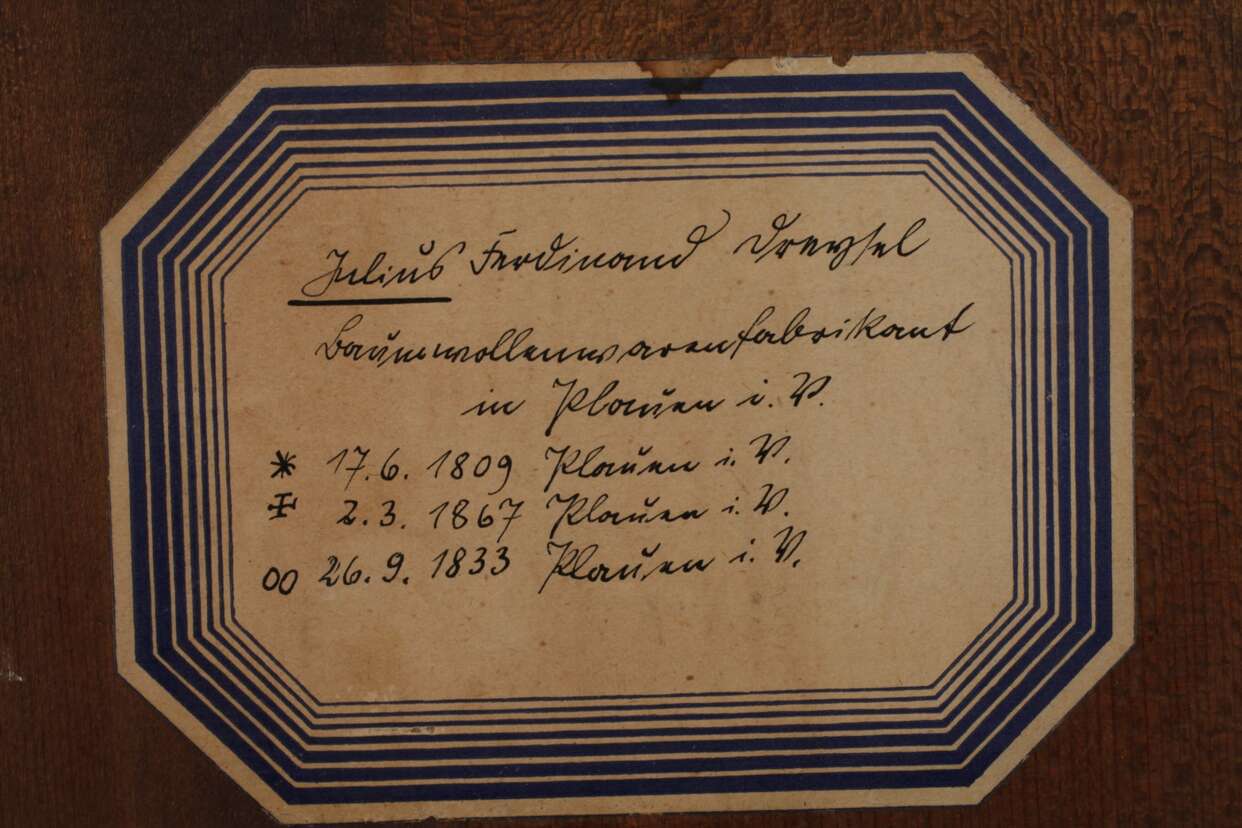 Julius Ferdinand Dreysel
Baumwollenwarenfabrikant
in Plauen i. V.
* 17. 6. 1809 Plauen i. V.
✠ 2. 3. 1867 Plauen i. V.
oo 26. 9. 1833 Plauen i. V.